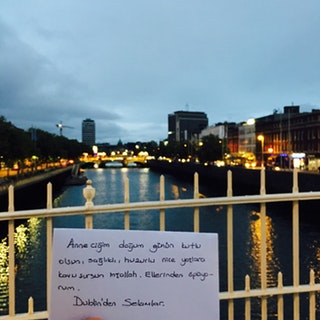 Anneciğim doğum günün kutlu
olsun, sağlıklı, huzurlu nice yaşlara
kavuşursun inşallah. Ellerinden öpüyo-
rum.
Dublin'den Selamlar.